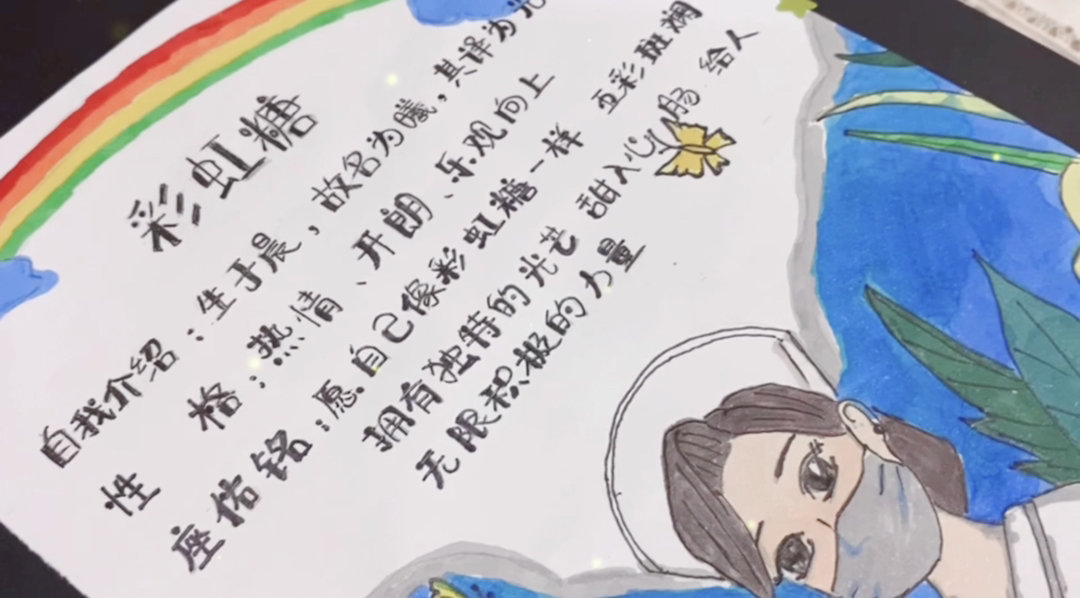 彩虹糖
自我介绍：生于晨，故名为曦，其译为光
性格：热情、开朗、乐观向上
座佑铭：愿自己像彩虹糖一样 五彩斑斓
拥有独特的光芒 甜入心肠 给人
无限积极的力量